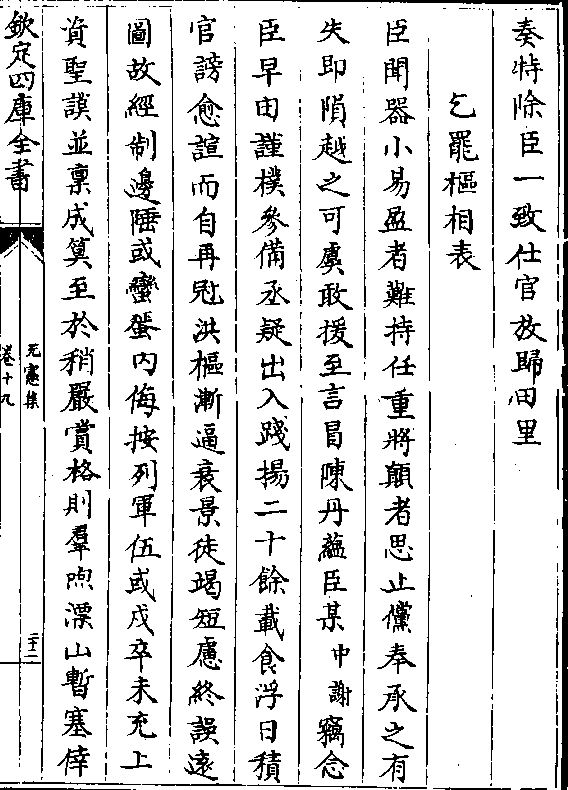 奏特除臣一致仕官放歸田里
乞罷樞相表
臣聞器小易盈者難持任重將顛者思止儻奉承之有
失即隕越之可虞敢援至言冒陳丹蘊臣某中謝竊念
臣早由謹樸參備丞疑出入踐揚二十餘載食浮日積
官謗愈諠而自再尅洪樞漸逼衰景徒竭短慮終誤遠
圖故經制邊陲或蠻蜑内侮按列軍伍或戍卒未充上
資聖謨並稟成筭至於稍嚴賞格則羣喣漂山暫塞倖
欽定四庫全書
元憲集
卷十九
二十二